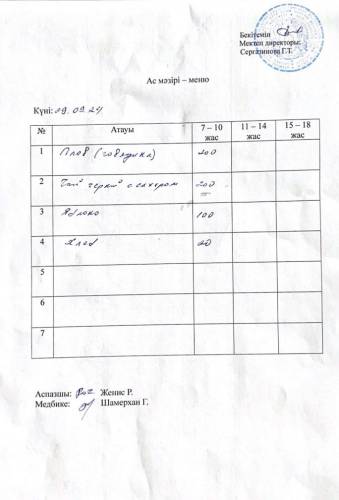 Бекітемін
Мектеп директоры:
Сергазинова Г.Т.
Ас мәзірі – меню
Күні: 19.09.24
№ Атауы 7 – 10 жас 11 – 14 жас 15 – 18 жас
1 Плов (говядина) 200
2 Чай черный с сахаром 200
3 Яблоко 100
4 Хлеб 20
5
6
7
Аспазшы: Женис Р.
Медбике: Шамерхан Г.